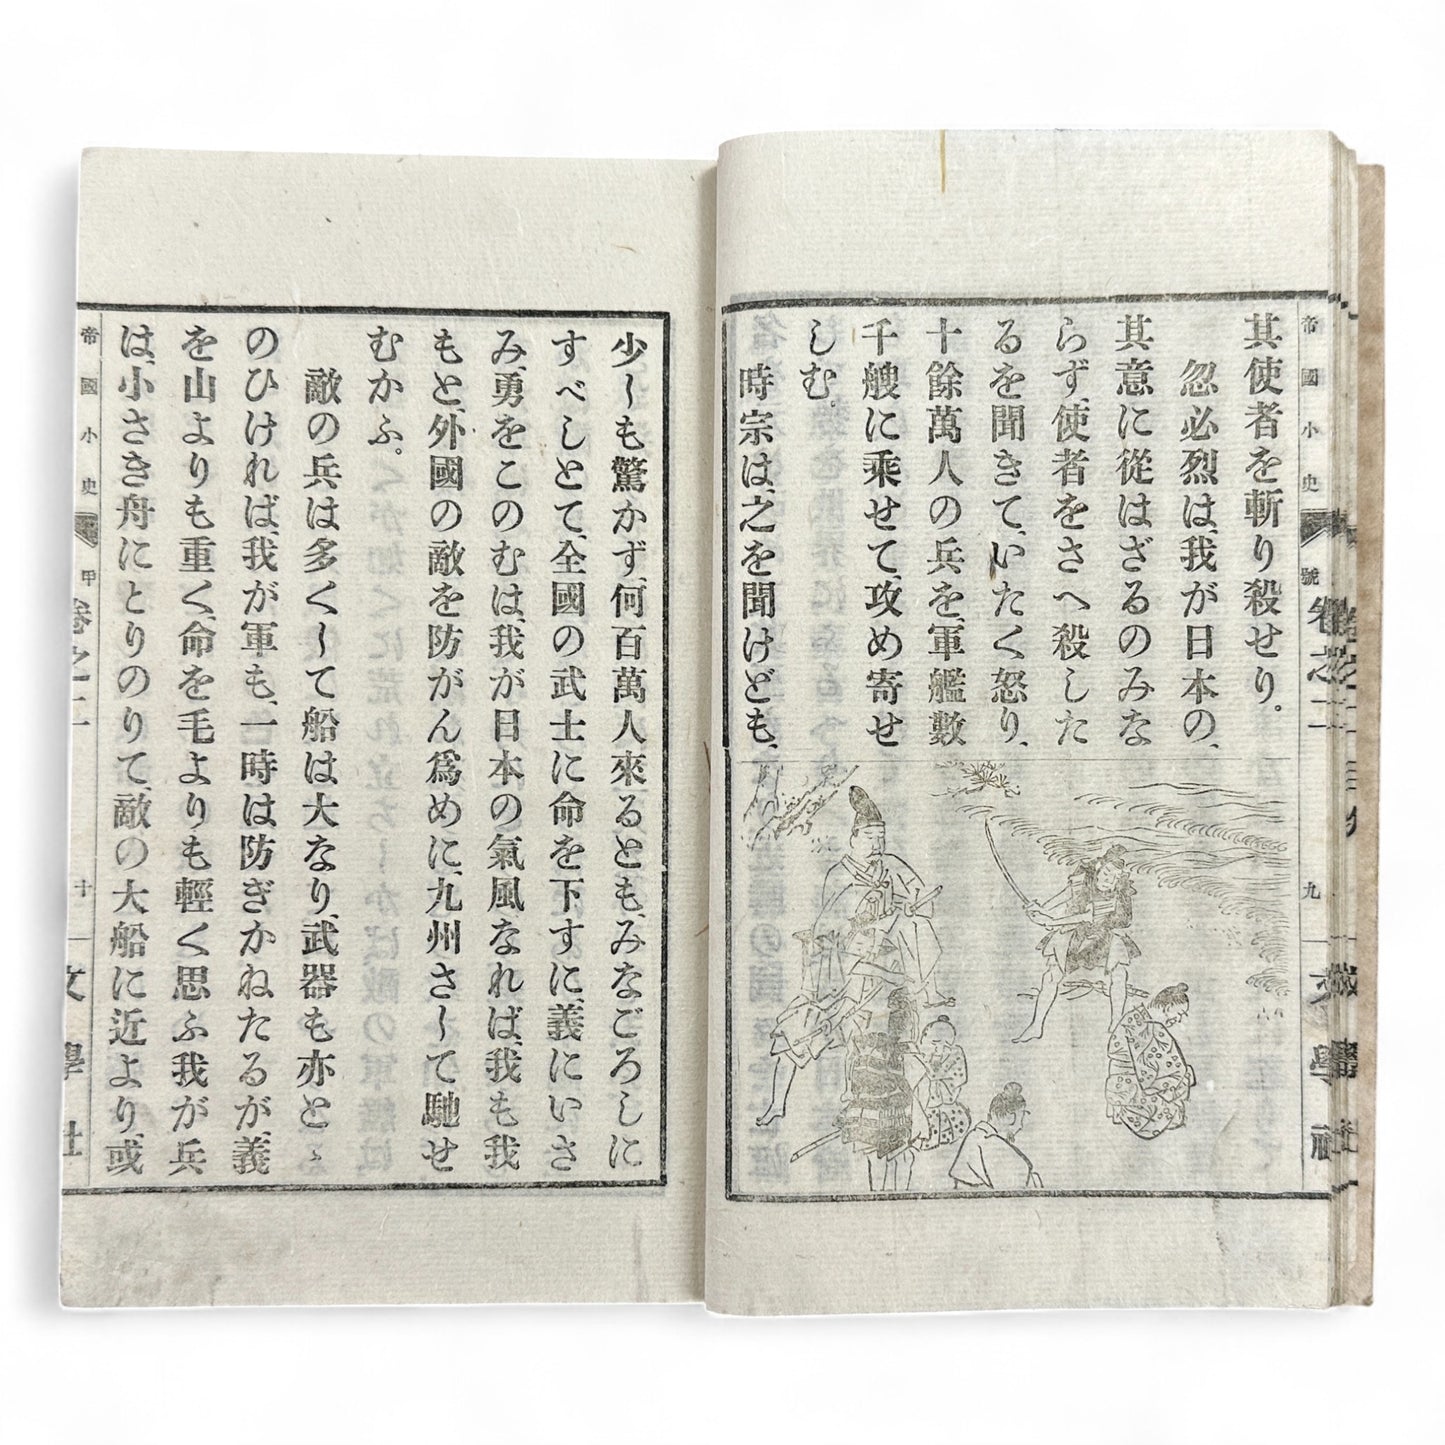 其使者を斬り殺せり。
忽必烈は、我が日本の、
其意に從はざるのみな
らず、使者をさへ殺した
るを聞きて、いたく怒り、
十餘萬人の兵を、軍艦數
千艘に乘せて、攻め寄せ
しむ。
時宗は、之を聞けども、
帝國小史
甲號卷之二
九
文學社
少しも驚かず、何百萬人來るとも、みなごろしに
すべしとて、全國の武士に命を下すに、義にいさ
み、勇をこのむは、我が日本の氣風なれば、我も我
もと、外國の敵を防がん爲めに、九州さして馳せ
むかふ。
敵の兵は多くして船は大なり、武器も亦とゝ
のひければ、我が軍も、一時は防ぎかねたるが、義
を山よりも重く、命を毛よりも輕く思ふ我が兵
は、小さき舟にとりのりて、敵の大船に近より、或
帝國小史
甲
卷之二
十
文學社